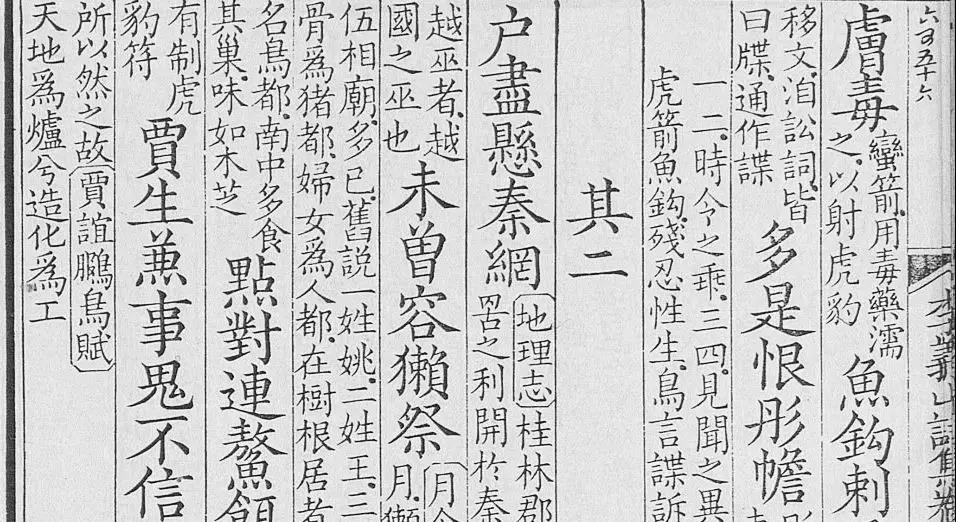 六百五十六
李義山詩集
膚毒
蠻箭用毒藥濡
之以射虎豹
魚鈎刺
移文洎訟詞皆
曰牒通作諜
多是恨彤幨
一二時令之乖三四見聞之異
虎箭魚鈎殘忍性生鳥言諜訴
其二
户盡懸秦網
地理志桂林郡
罟之利開於秦
越巫者越
國之巫也
未曾容獺祭
月令
月獺
伍相廟多已舊說一姓姚二姓王三
骨為猪都婦女為人都在樹根居者
名鳥都南中多食
其巢味如木芝
點對連鰲餌
有制虎
豹符
賈生兼事鬼不信
所以然之故賈誼鵩鳥賦
天地為爐兮造化為工